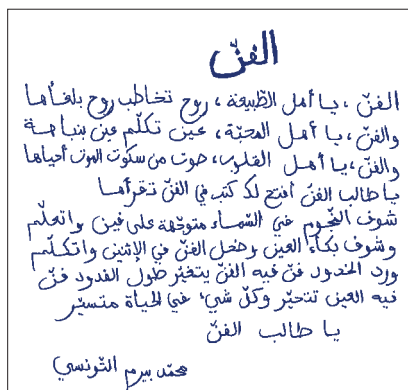 الفنّ
الفنّ ، يا أهل الطّبيعة ، روح تخاطب روح بلغاها
والفنّ ، يا أهل المحبّة ، عين تكلّم عين بنباهة
والفنّ ، يا أهل القلوب ، صوت من سكوت الموت أحياها
يا طالب الفنّ افتح لك كتب في الفنّ تقرأها
شوف النّجوم في السّماء متوجّهة على فين واتعلّم
وشوف بكاء العين وخخل الفنّ في الإثنين واتكلّم
ورد الخدود فنّ فيه الفنّ يتغيّر طول القدود فنّ
فيه العين تتحيّر وكلّ شيء في الحياة متسيّر
يا طالب الفنّ
محمّد بيرم التّونسي